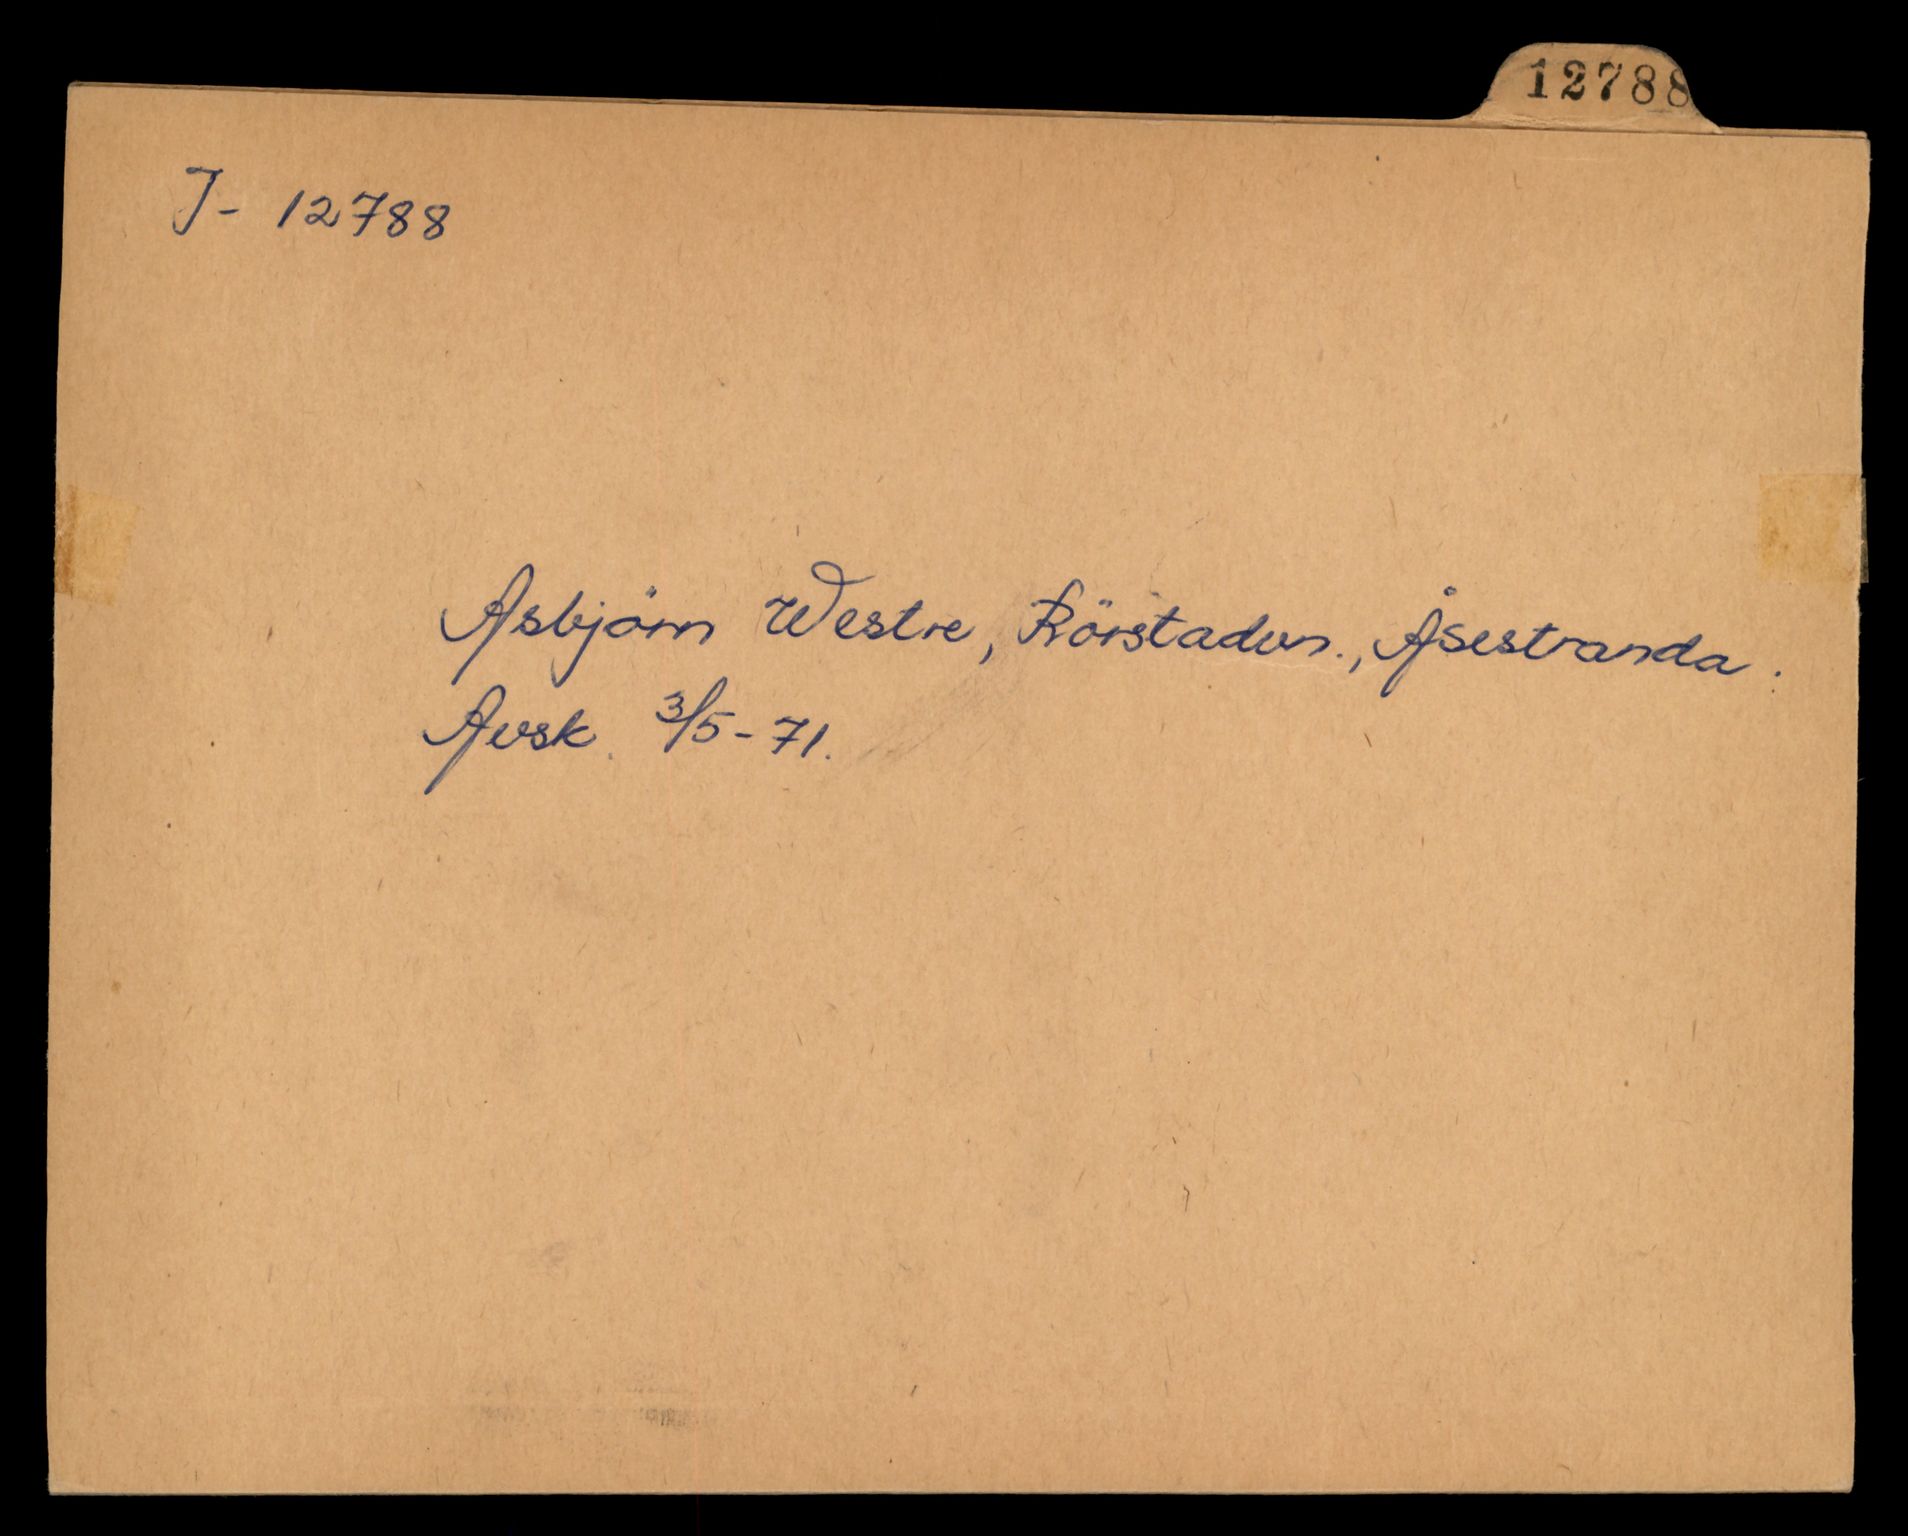 12788
J- 12788
Asbjörn Westre, Rörstadvn., Åsestranda.
Avsk. 3/5-71.